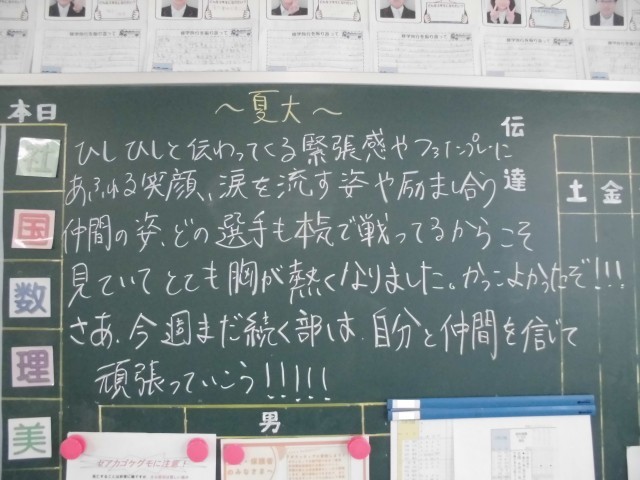 本日
～夏大～
伝達
ひしひしと伝わってくる緊張感やファインプレーに
あふれる笑顔、涙を流す姿や励まし合う
仲間の姿、どの選手も本気で戦ってるからこそ
見ていてとても胸が熱くなりました。かっこよかったぞ!!!
さあ、今週まだ続く部は、自分と仲間を信じて
頑張っていこう!!!!!
土 金
社
国
数
理
美
男
セアカゴケグモに注意!